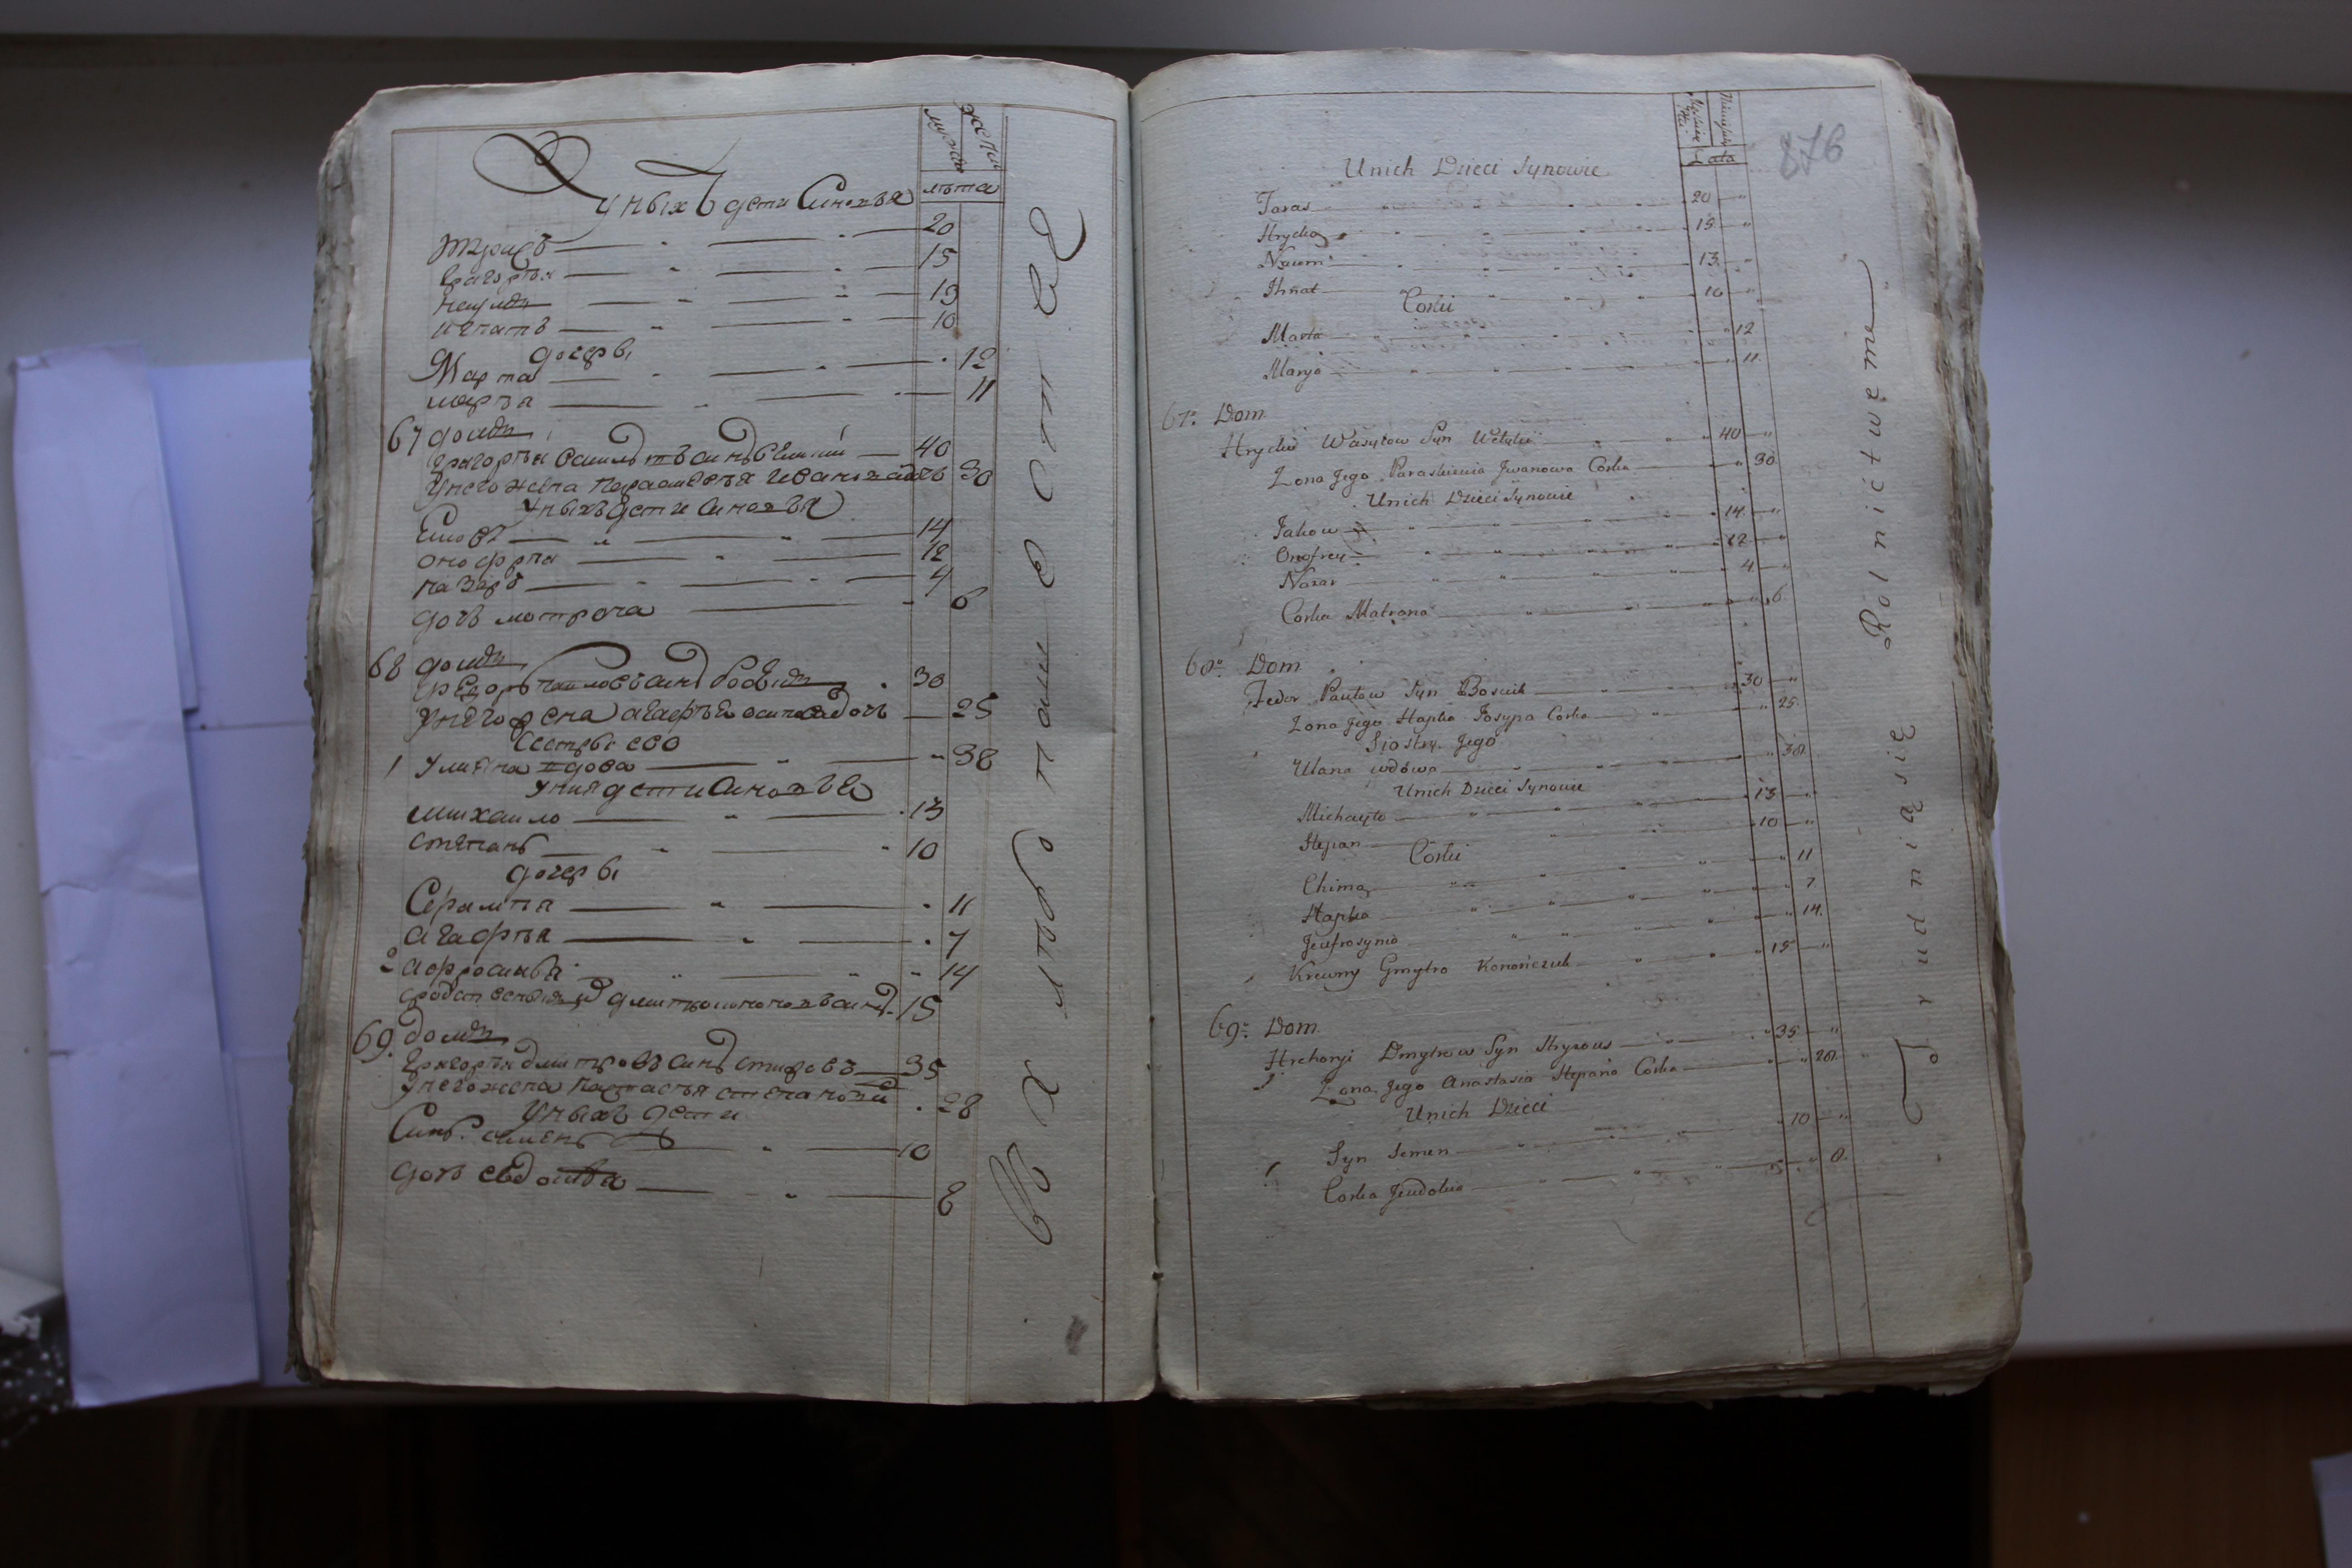 мужск женск
лѣта
У ныхъ дети Синовья
тарасъ 20
Григорѣи 15
наумъ 13
игнатъ 10
дочеры
Марта 12
марья 11
67 домъ
Григорѣи василѣвъ синъ 40
У него жена Парасковѣя Иванова дочь 30
У ныхъ дети синовья
Яковъ 14
онофрѣи 12
назаръ 4
дочь мотрона 6
68 домъ
Федоръ павловъ синъ 30
У него жена агафѣя осипова дочь 25
Сестры его
1 Улияна вдова 38
У ния дети Синовья
михаило 13
степанъ 10
дочеры
Серамия 11
агафѣя 7
2 афросинья 14
15
69. домъ
Григорѣи дмитровъ синъ 35
У него жена настасѣя степанова 28
У ныхъ дети
Синъ семенъ 10
дочь евдокия 8
876
Lata
Unich Dzieci Synowie
Taras 20 "
Hrycko 15 "
Naum 13 "
Ihnat 10 "
Corki
Marta " 12
Marya " 11
67. Dom
Hrycko Wasylow Syn 40 "
Zona Jego Paraskiewia Jwanowa Corka " 30
Unich Dzieci Synowie
Jakow 14 "
Onofrey 12 "
Nazar 4 "
Corka Matrona " 6
68. Dom
Fedor Pawlow Syn 30 "
Zona Jego Hapka Josypa Corka " 25
Siostry Jego
Ulana wdowa " 38
Unich Dzieci Synowie
Michayło 13 "
Stepan 10 "
Corki
Chima " 11
Hapka " 7
Jewfrosynia " 14
Krewny Gmytro Konończuk 15 "
69. Dom
Hrehoryi Dmytrow Syn 35 "
Zona Jego Anastasia Stepana Corka " 28
Unich Dzieci
Syn Semen 10 "
Corka Jewdokia " 8
Trudnią się Rolnictwem